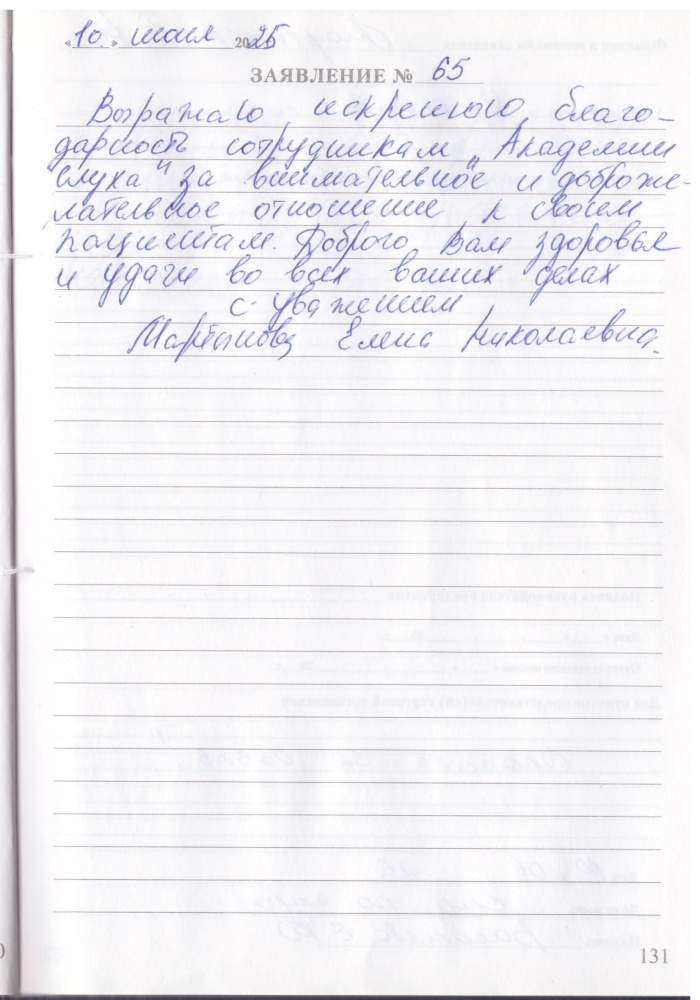 «10.» июня 2025
ЗАЯВЛЕНИЕ № 65
Выражаю искреннюю благо-
дарность сотрудникам „Академии
слуха" за внимательное и доброже-
лательное отношение к своем
пациентам. Доброго Вам здоровья
и удачи во всех ваших делах
с уважением
Елена Николаевна.
131